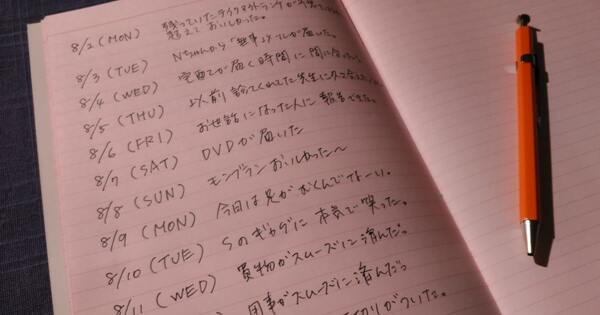 8/2 (MON) 残っていたテイクアウトランチが
超えて おいしかった。
8/3 (TUE) Nちゃんから「無事」メールが届いた。
8/4 (WED) 宅配で届く時間に間に合った
8/5 (THU) 以前 診てくれてた先生に
8/6 (FRI) お世話になった人に 報告できた。
8/7 (SAT) DVDが届いた
8/8 (SUN) モンブランおいしかった〜
8/9 (MON) 今日は足がむくんでなーい。
8/10 (TUE) Sのギャグに 本気で笑った。
8/11 (WED) 買物がスムーズに済んだっ
用事がスムーズに済んだっ
切りがついた。